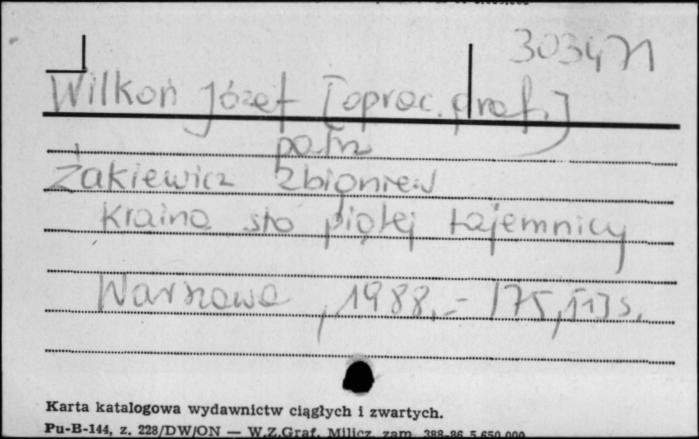 303471
Wilkoń Józef [oprac. graf.]
patrz
Żakiewicz Zbigniew
Kraina sto piątej tajemnicy
Warszawa, 1988.- 175, [1] s.
Karta katalogowa wydawnictw ciągłych i zwartych.
Pu-B-144, z. 228/DW/ON — W.Z.Graf. Milicz, zam. 388-86 5.650.000